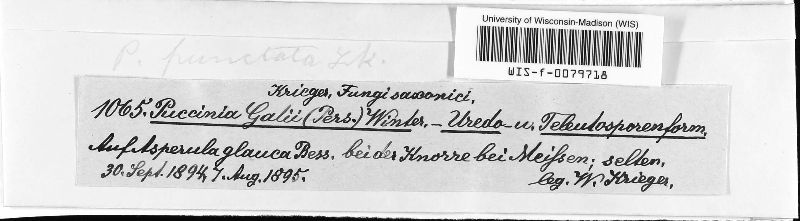 University of Wisconsin-Madison (WIS)
WIS-f-0079718
P. punctata Lk.
Krieger, Fungi saxonici,
1065. Puccinia Galii (Pers.) Winter. – Uredo- u. Teleutosporenform.
Auf Asperula glauca Bess. bei der Knorre bei Meißen; selten.
30. Sept. 1894, 7. Aug. 1895. leg. W. Krieger.